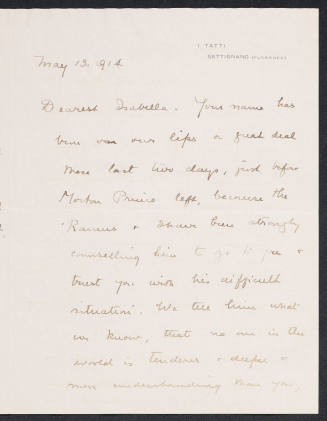 I TATTI
SETTIGNANO (FLORENCE)
May 13. 1914
Dearest Isabella. Your name has
been on our lips a great deal
these last two days, just before
Morton left, because the
& I have been strongly
counselling him to go to you &
trust you with his difficult
situation. We tell him what
we know, that no one in the
world is tenderer & deeper &
more understanding than you,